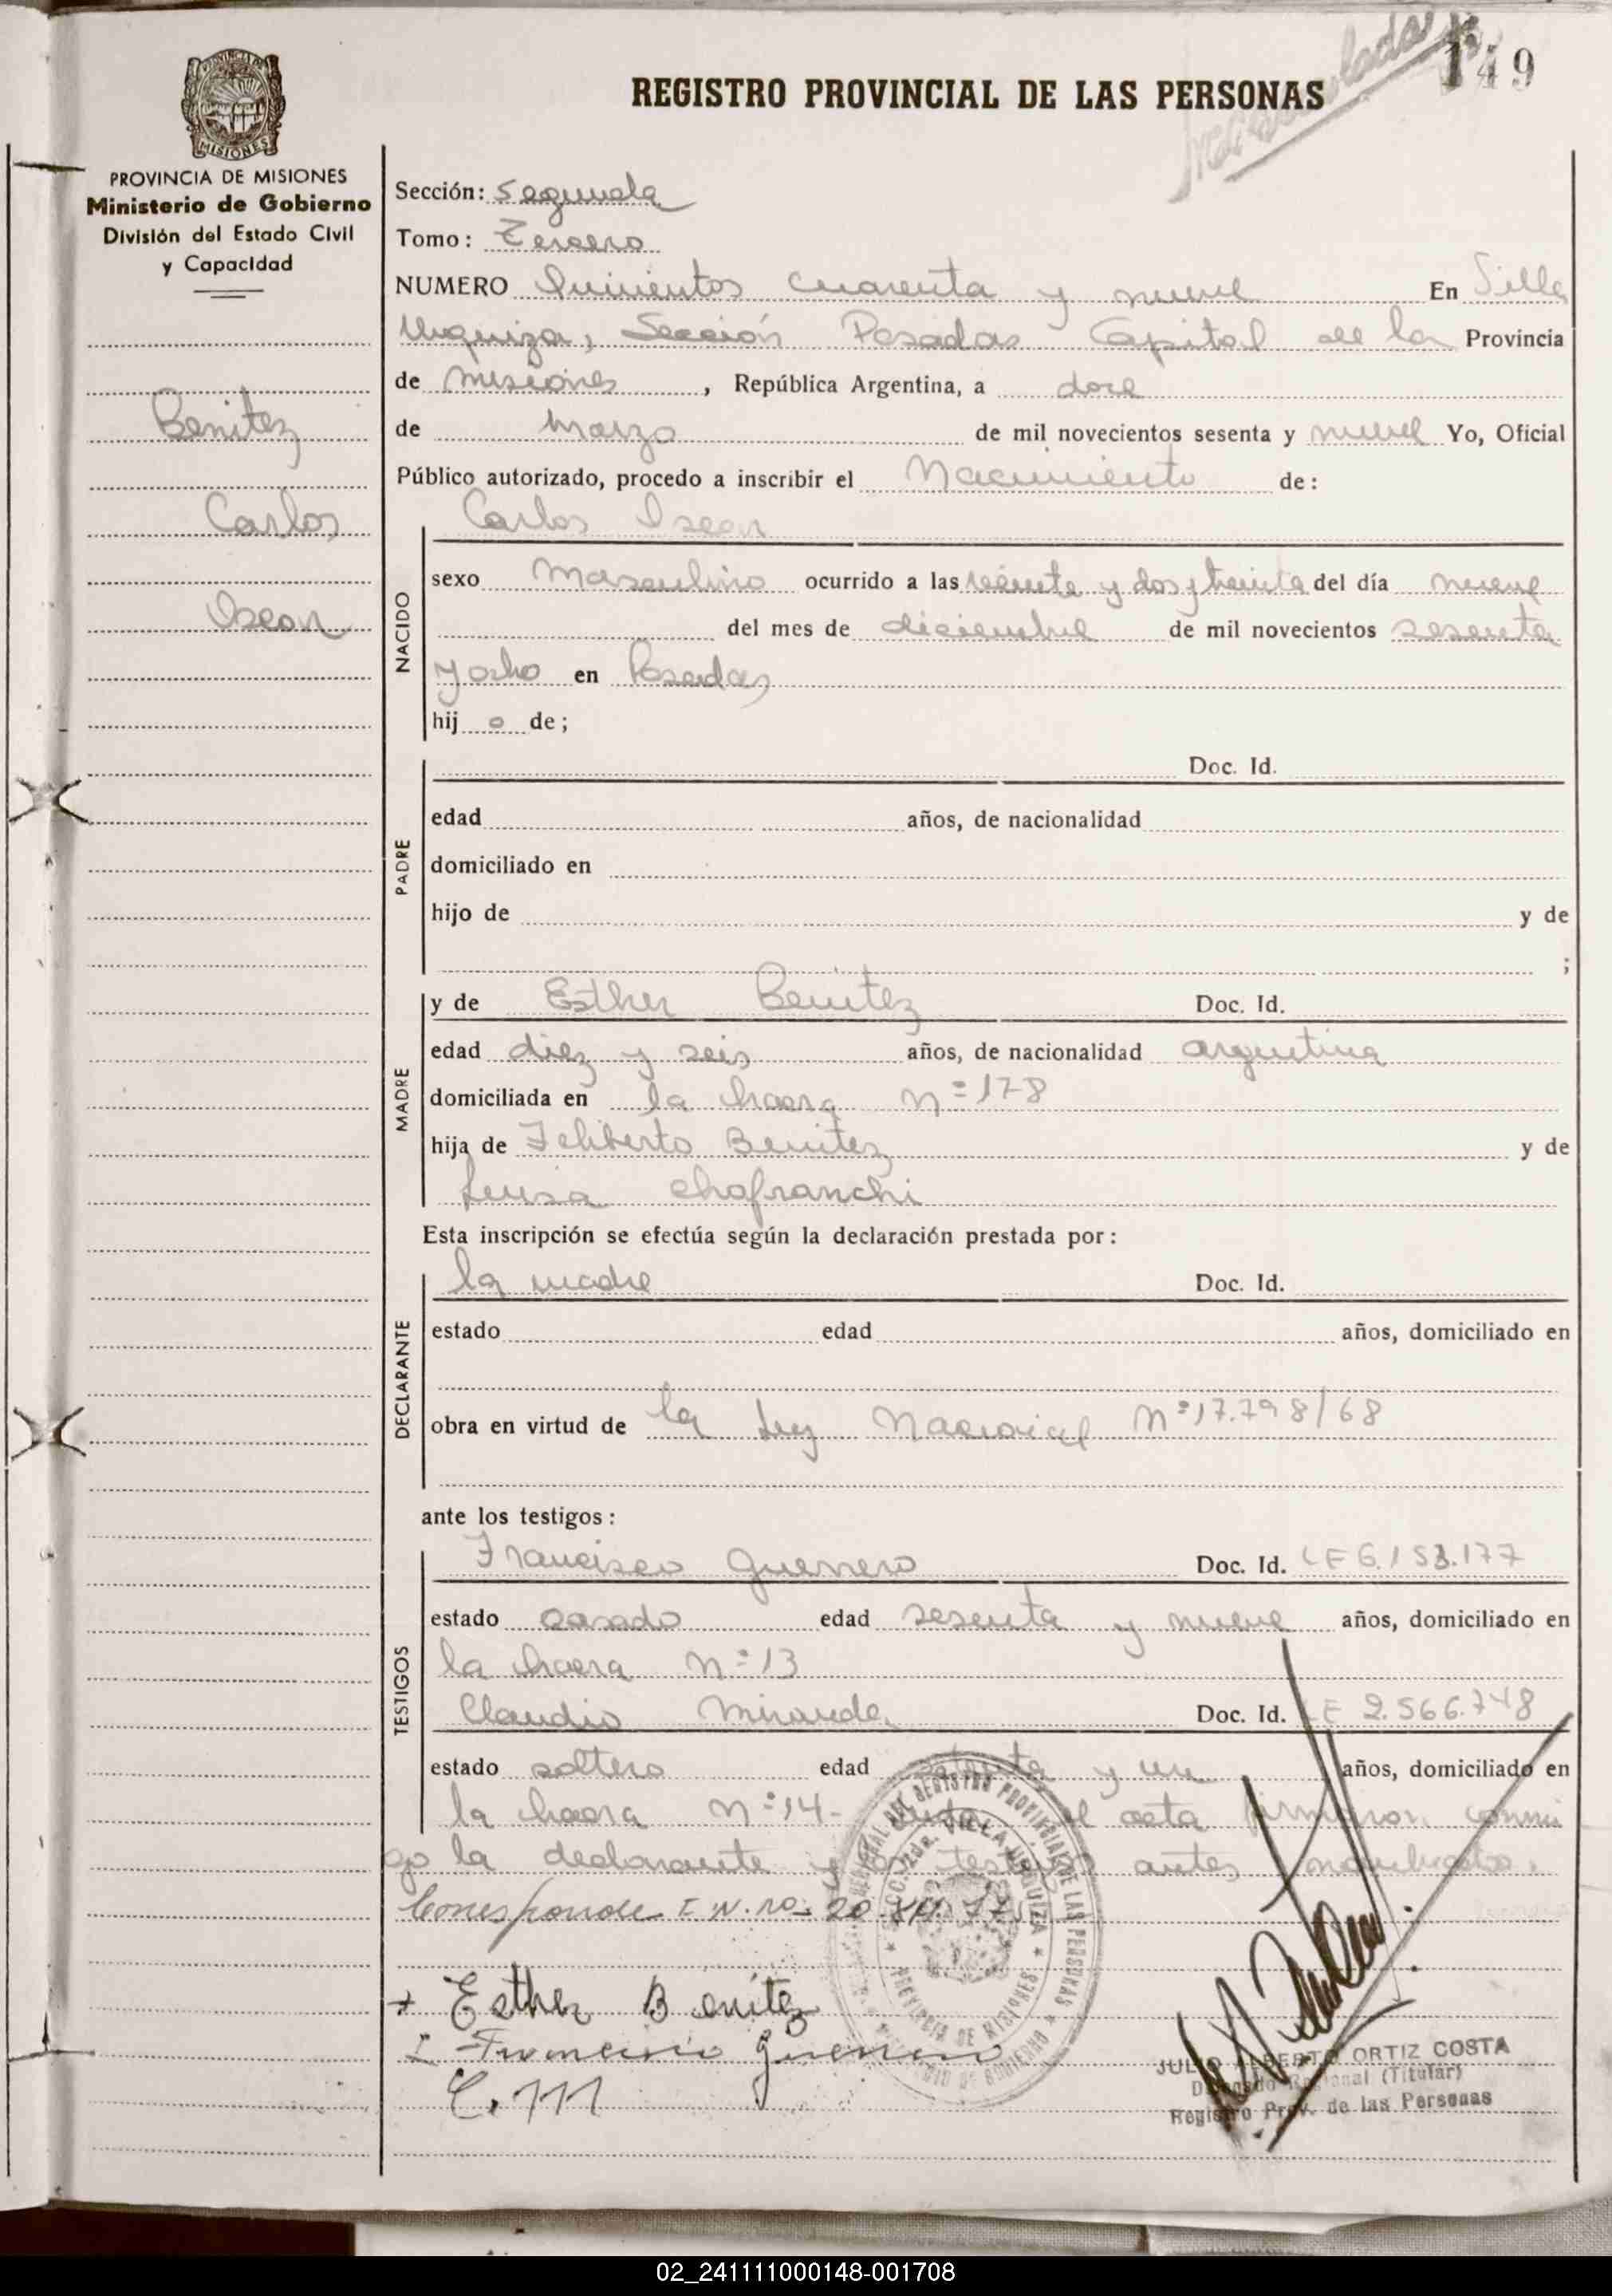 149
REGISTRO PROVINCIAL DE LAS PERSONAS
MISIONES
PROVINCIA DE MISIONES
Ministerio de Gobierno
División del Estado Civil
y Capacidad
Benitez
Carlos
Oscar
Sección: Segunda
Tomo: Tercero
NUMERO Quinientos cuarenta y nueve En Villa
Urquiza, Sección Posadas Capital de la Provincia
de Misiones, República Argentina, a doce
de Marzo de mil novecientos sesenta y nueve Yo, Oficial
Público autorizado, procedo a inscribir el Nacimiento de:
NACIDO
Carlos Oscar
sexo Masculino ocurrido a las veinte y dos y treinta del día nueve
del mes de diciembre de mil novecientos sesenta
y ocho en Posadas
hij o de;
PADRE
Doc. Id.
edad años, de nacionalidad
domiciliado en
hijo de y de
;
MADRE
y de Esther Benitez Doc. Id.
edad diez y seis años, de nacionalidad argentina
domiciliada en la chacra Nº 178
hija de Feliberto Benitez y de
Luisa Chafranchi
Esta inscripción se efectúa según la declaración prestada por:
DECLARANTE
la madre Doc. Id.
estado edad años, domiciliado en
obra en virtud de la Ley Nacional Nº 17.798/68
ante los testigos:
TESTIGOS
Francisco Guerrero Doc. Id. LE 6.153.177
estado casado edad sesenta y nueve años, domiciliado en
la chacra Nº 13
Claudio Miranda Doc. Id. LE 2.566.748
estado soltero edad y un años, domiciliado en
la chacra Nº 14- el acta firmaron conmi
go la declarante y los testigos antes nombrados.
Corresponde
+ Esther Benitez
Francisco Guerrero
C. M
SECC. 2da. VILLA URQUIZA
PROVINCIA DE MISIONES
JULIO ALBERTO ORTIZ COSTA
Delegado Regional (Titular)
Registro Prov. de las Personas
02_241111000148-001708